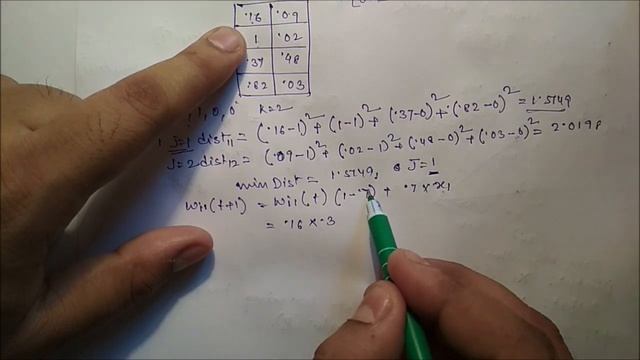 .16 .09
1 .02
.37 .48
.82 .03
1, 0, 0 k=2
J=1 dist11 = (.16-1)² + (1-1)² + (.37-0)² + (.82-0)² = 1.5149
J=2 dist12 = (.09-1)² + (.02-1)² + (.48-0)² + (.03-0)² = 2.0198
min Dist = 1.5149, J=1
= wi1(t) (1-.7) + .7 × x1
= .16 × .3